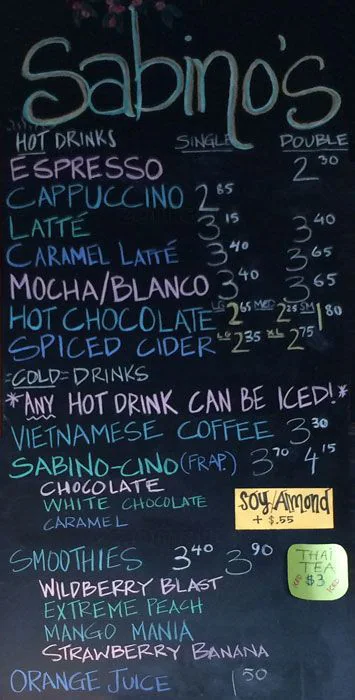 Sabino's
HOT DRINKS SINGLE DOUBLE
ESPRESSO 2 30
CAPPUCCINO 2 85
LATTÉ 3 15 3 40
CARAMEL LATTÉ 3 40 3 65
MOCHA/BLANCO 3 40 3 65
HOT CHOCOLATE LG 2 65 MED 2 25 SM 1 80
SPICED CIDER LG 2 35 XL 2 75
=COLD= DRINKS
*ANY HOT DRINK CAN BE ICED!*
VIETNAMESE COFFEE 3 30
SABINO-CINO (FRAP.) 3 70 4 15
CHOCOLATE
WHITE CHOCOLATE
CARAMEL
Soy/Almond
+ $.55
SMOOTHIES 3 40 3 90
WILDBERRY BLAST
EXTREME PEACH
MANGO MANIA
STRAWBERRY BANANA
THAI
TEA
$3
ORANGE JUICE 1 50